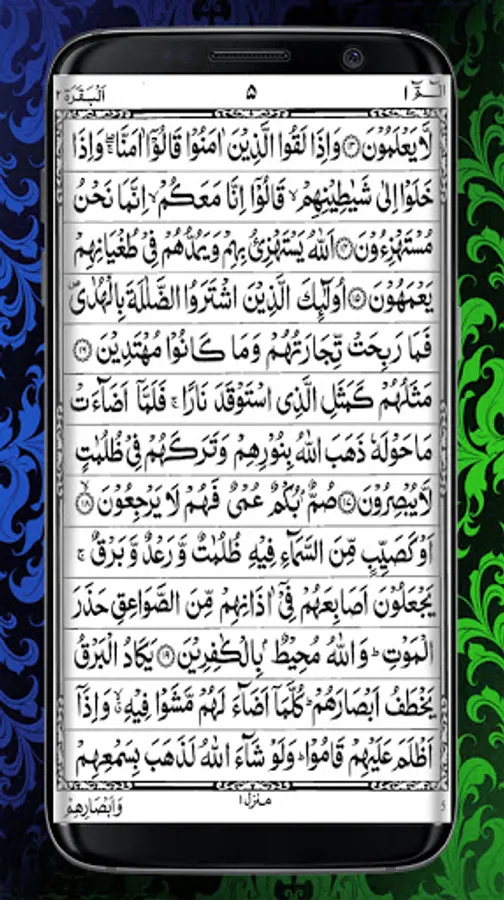 الٓـمّٓ ١ ٥ اَلْبَقَرَة ٢
لَّا يَعْلَمُوْنَ ﴿۱۳﴾ وَاِذَا لَقُوا الَّذِيْنَ اٰمَنُوْا قَالُوْٓا اٰمَنَّا ۖۚ وَاِذَا
خَلَوْا اِلٰى شَيٰطِيْنِهِمْ ۙ قَالُوْٓا اِنَّا مَعَكُمْ ۙ اِنَّمَا نَحْنُ
مُسْتَهْزِءُوْنَ ﴿۱۴﴾ اَللّٰهُ يَسْتَهْزِئُ بِهِمْ وَيَمُدُّهُمْ فِىْ طُغْيَانِهِمْ
يَعْمَهُوْنَ ﴿۱۵﴾ اُولٰٓئِكَ الَّذِيْنَ اشْتَرَوُا الضَّلٰلَةَ بِالْهُدٰى ۪
فَمَا رَبِحَتْ تِّجَارَتُهُمْ وَمَا كَانُوْا مُهْتَدِيْنَ ﴿۱۶﴾
مَثَلُهُمْ كَمَثَلِ الَّذِى اسْتَوْقَدَ نَارًا ۚ فَلَمَّآ اَضَآءَتْ
مَا حَوْلَهٗ ذَهَبَ اللّٰهُ بِنُوْرِهِمْ وَتَرَكَهُمْ فِىْ ظُلُمٰتٍ
لَّا يُبْصِرُوْنَ ﴿۱۷﴾ صُمٌّۢ بُكْمٌ عُمْىٌ فَهُمْ لَا يَرْجِعُوْنَ ﴿۱۸﴾
اَوْ كَصَيِّبٍ مِّنَ السَّمَآءِ فِيْهِ ظُلُمٰتٌ وَّرَعْدٌ وَّبَرْقٌ ۚ
يَجْعَلُوْنَ اَصَابِعَهُمْ فِىْٓ اٰذَانِهِمْ مِّنَ الصَّوَاعِقِ حَذَرَ
الْمَوْتِ ؕ وَاللّٰهُ مُحِيْطٌۢ بِالْكٰفِرِيْنَ ﴿۱۹﴾ يَكَادُ الْبَرْقُ
يَخْطَفُ اَبْصَارَهُمْ ؕ كُلَّمَآ اَضَآءَ لَهُمْ مَّشَوْا فِيْهِ ۙ وَاِذَآ
اَظْلَمَ عَلَيْهِمْ قَامُوْا ؕ وَلَوْ شَآءَ اللّٰهُ لَذَهَبَ بِسَمْعِهِمْ
5 منزل ١ وَاَبْصَارِهِمْ